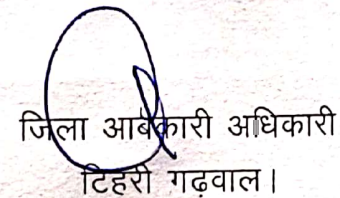 जिला आबकारी अधिकारी
टिहरी गढ़वाल।